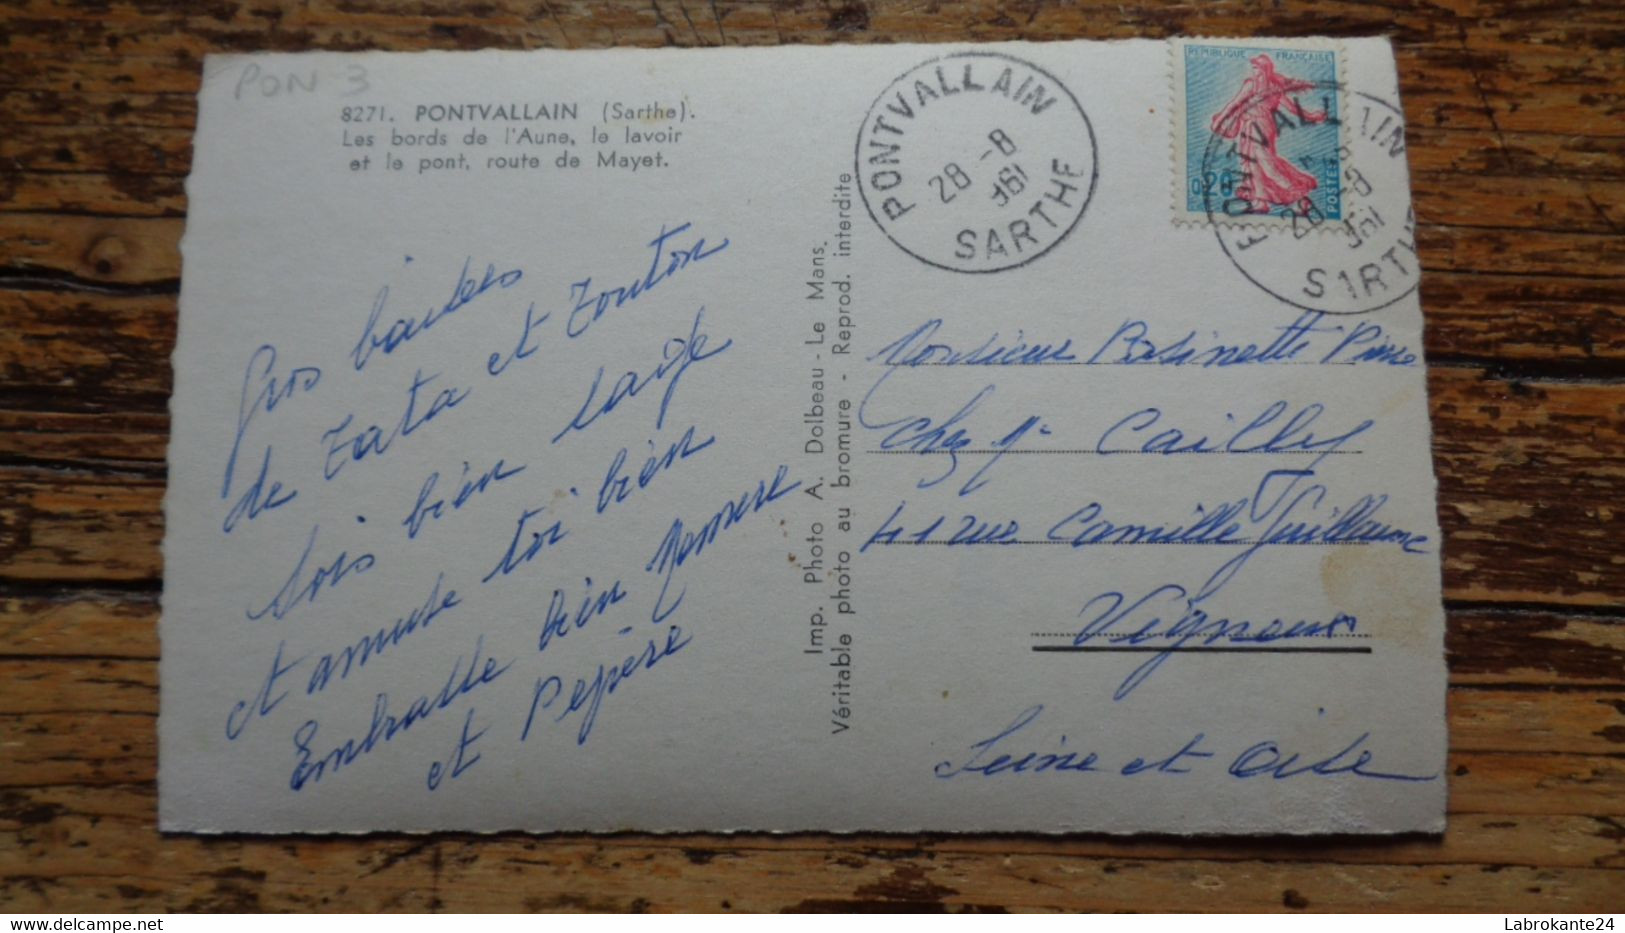 PON 3
8271. PONTVALLAIN (Sarthe).
Les bords de l'Aune, le lavoir
et le pont, route de Mayet.
Gros baisers
de Tata et Tonton
Sois bien sage
et amuse toi bien
Embrasse bien Memere
et Pepère
Imp. Photo A. Dolbeau - Le Mans.
Véritable photo au bromure - Reprod. interdite
PONTVALLAIN
28 - 8
1961
SARTHE
REPUBLIQUE FRANÇAISE
0,20
POSTES
PONTVALLAIN
28 - 8
1961
SARTHE
Monsieur Pierre
Chez Mr Cailly
41 rue Camille Guillaume
Vigneux
Seine et Oise
Labrokante24